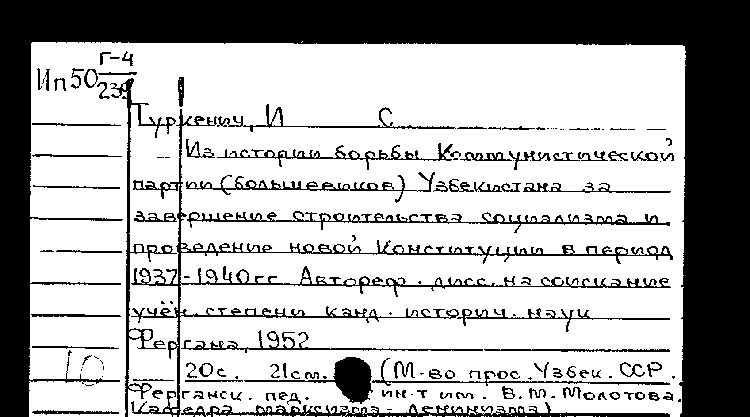 Г-4
Ип50
239
Туркенич, И С
Из истории борьбы Коммунистической
партии (большевиков) Узбекистана за
завершение строительства социализма и
проведение новой Конституции в период
1937-1940гг Автореф. дисс. на соискание
учён. степени канд. историч. наук
Фергана, 1952
20с. 21см. (М-во прос. Узбек. ССР.
10
Ферганск. пед. ин-т им. В.М. Молотова.
Кафедра марксизма-ленинизма)